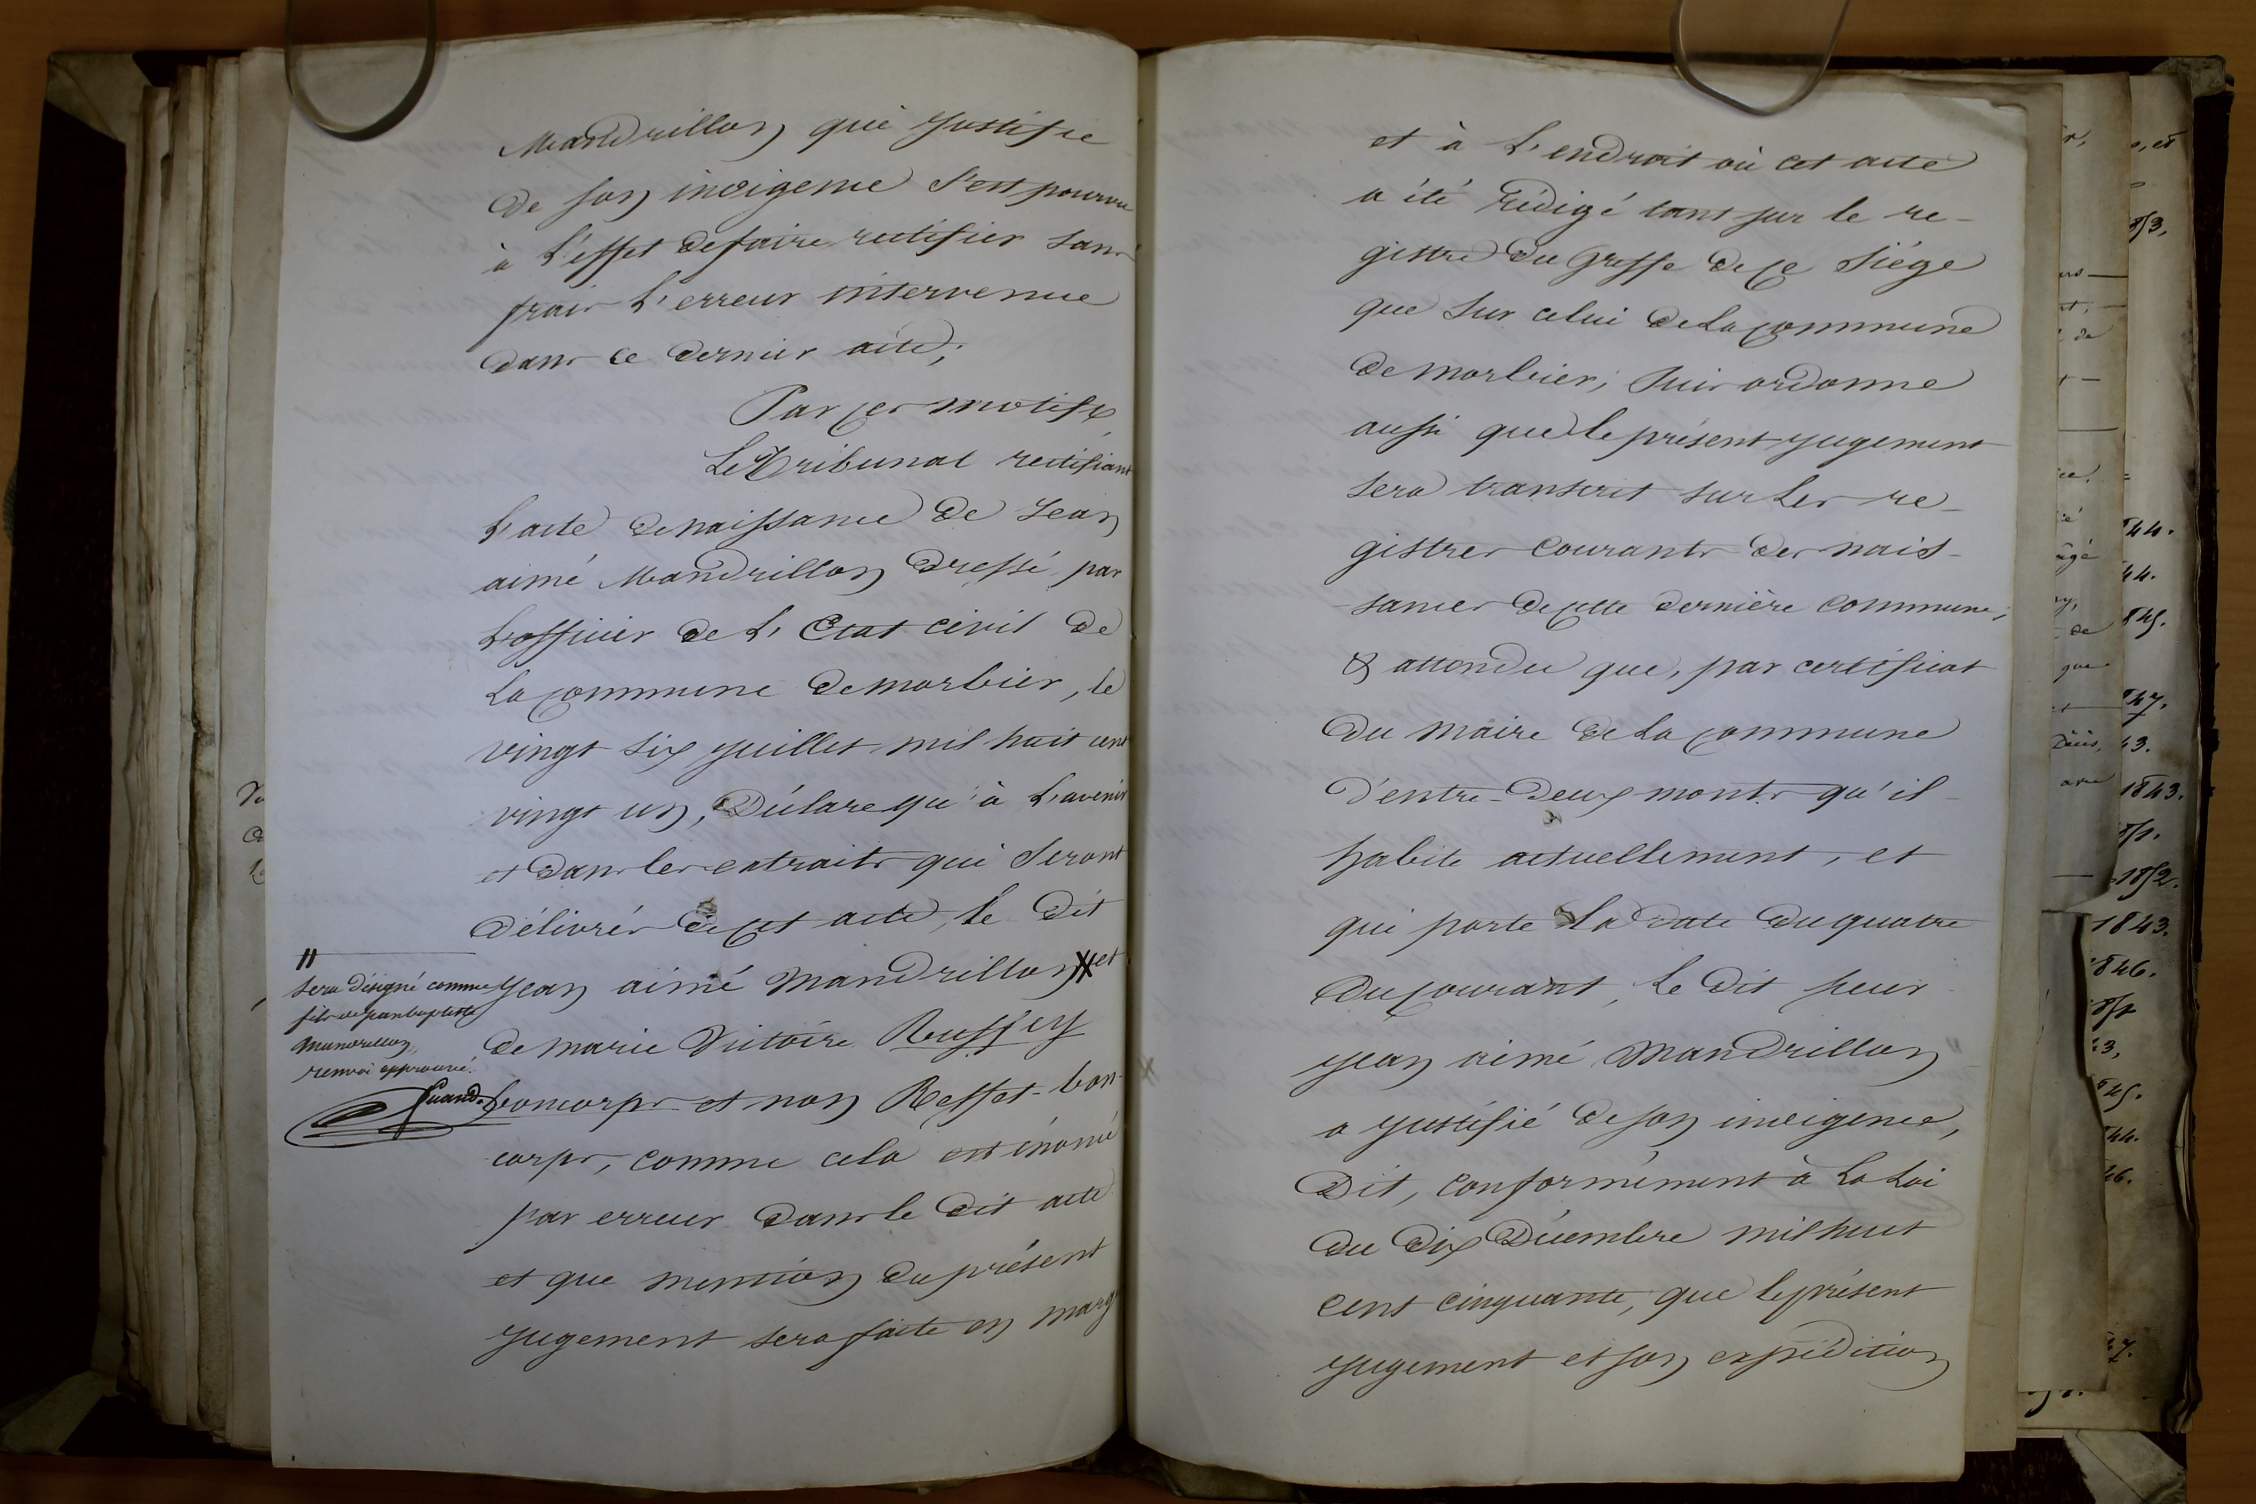 Mandrillon qui justifie
de son indigence s'est pourvu
à l'effet de faire rectifier sans
frais l'erreur intervenue
dans ce dernier acte;
Par ces motifs
Le Tribunal rectifiant
l'acte de naissance de Jean
aimé Mandrillon dressé par
l'officier de l'Etat civil de
la commune de morbier, le
vingt six juillet mil huit cent
vingt un, Déclare qu'à l'avenir
et dans les extraits qui seront
délivrés de cet acte, le dit
Jean aimé Mandrillon # et
de marie Victoire Buffey
boncorps et non Reffet-bon-
corps, comme cela est énoncé
par erreur dans le dit acte
et que mention du présent
jugement sera faite en marge
//
sera désigné comme
fils de jean baptiste
Mandrillon,
renvoi approuvé.
et à l'endroit où cet acte
a été rédigé tant sur le re-
gistre du Greffe de ce Siége
que sur celui de la commune
de morbier; Puis ordonne
aussi que le présent jugement
sera transcrit sur les re-
gistres courants des nais-
sances de cette dernière commune;
& attendu que, par certificat
du maire de la commune
d'entre-deux monts qu'il
habite actuellement, et
qui porte la date du quatre
du courant, le dit sieur
Jean aimé Mandrillon
a justifié de son indigence,
Dit, conformément à la Loi
du dix Décembre mil huit
cent cinquante, que le présent
jugement et son expédition